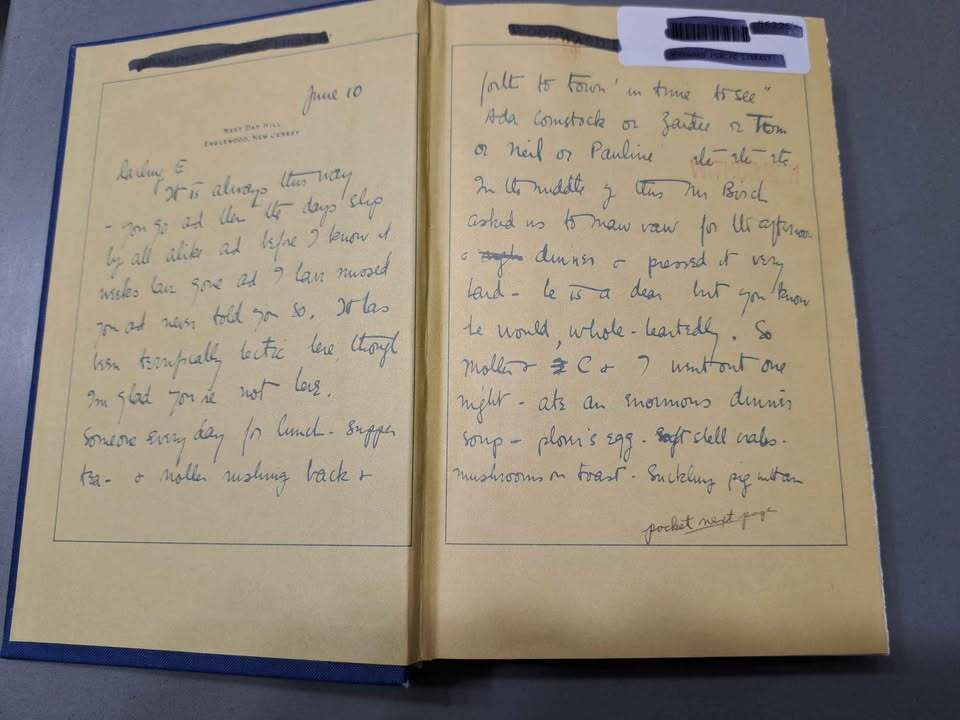 June 10
NEXT DAY HILL
ENGLEWOOD, NEW JERSEY
Darling E
It is always this way
- you go ad then the days slip
by all alike ad before I know it
weeks have gone ad I have missed
you ad never told you so. It has
been terrifically hectic here, though
I'm glad you're not here.
Someone every day for lunch - supper
tea - & Mother rushing back &
forth to town "in time to see"
Ada Comstock or or Tom
or Neil or Pauline etc - etc - etc.
In the middle of this Mr
asked us to for the afternoon
& dinner & pressed it very
hard - he is a dear but you know
he would, whole-heartedly. So
Mother & C & I went out one
night - ate an enormous dinner
soup - plover's egg - Soft shell crabs -
mushrooms on toast - Suckling pig with an
pocket next page